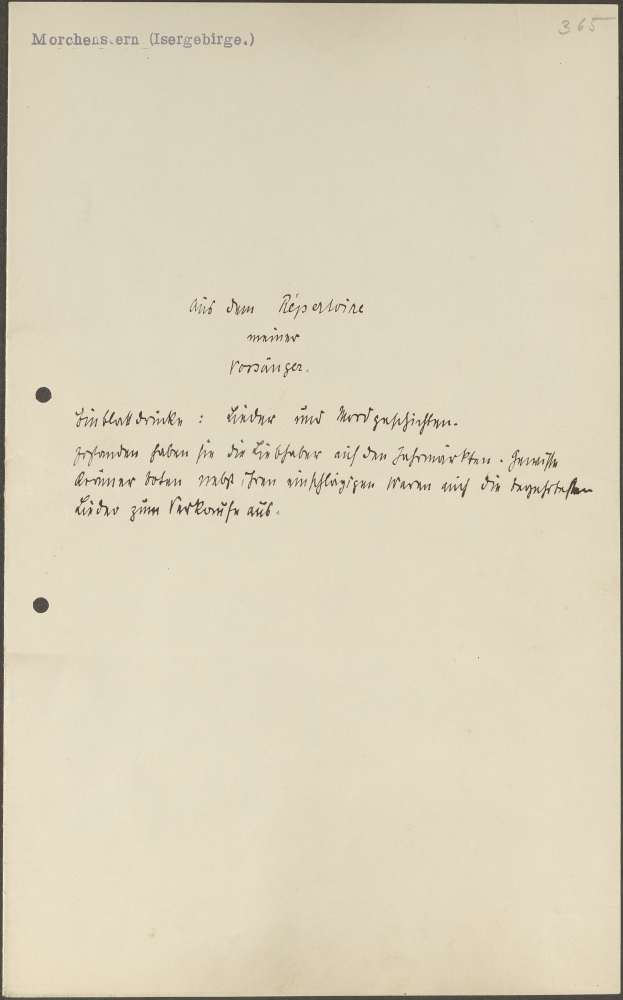 365
Morchenstern (Isergebirge.)
Aus dem Répertoire
meiner
Vorsänger.
Einblattdrucke: Lieder und Mordgeschichten.
Erstanden haben sie die Liebhaber auf den Jahrmärkten. Gewisse
Krämer boten nebst ihren einschlägigen Waren auch die begehrtesten
Lieder zum Verkaufe aus.